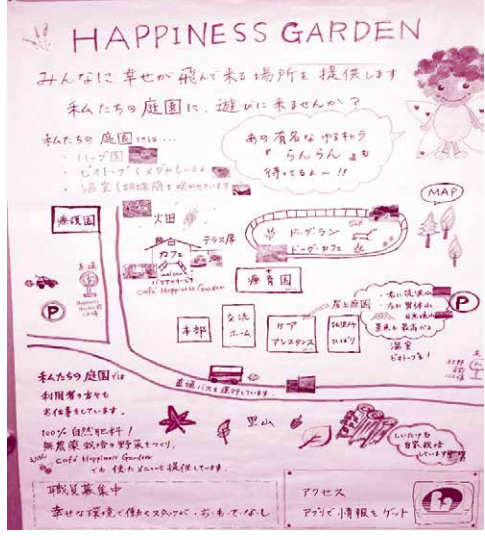 HAPPINESS GARDEN
みんなに幸せが飛んで来る場所を提供します
私たちの庭園に、遊びに来ませんか？
私たちの庭園には…
・ハーブ園
・ビオトープ(メダカもいるよ
・温室(胡蝶蘭を咲かせています
あの有名なゆるキャラ
『らんらん』も
待ってるよ〜!!
MAP
療護園
火田
舞台
カフェ
テラス席
Café Happiness Garden
ドッグラン
ドーグ・カフェ
療育園
本部
交流
ホーム
ケア
アシスタンス
屋上庭園
ひばり
・右に筑波山
・左に男体山
日光連山
景色も最高だよ
温室
ビオトープ
P
P
直通バスも運行しています。
私たちの庭園では
利用者の方々も
お仕事をしています。
100% 自然肥料！
無農薬栽培の野菜をつくり、
Café Happiness Garden
でも使たメニューを提供しています。
里山
しいたけも
自家栽培
しています
職員募集中
幸せな環境で働くスタッフが、お・も・て・な・し
アクセス
アプリで情報をゲット